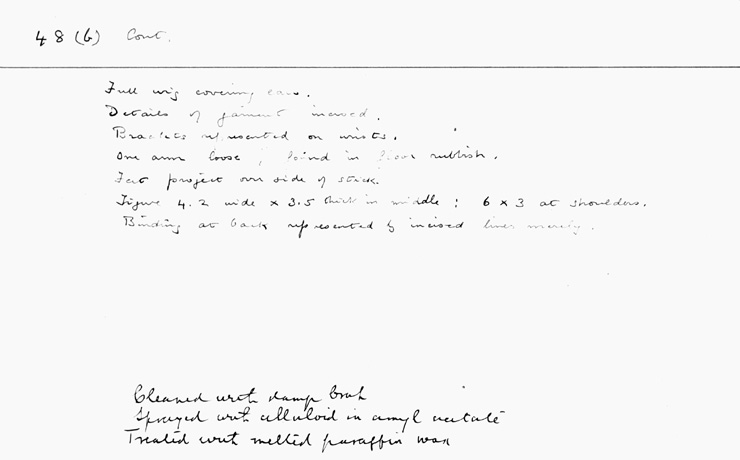 48 (b) Cont.
Full wig covering ears.
Details of garment incised.
Bracelets represented on wrists.
One arm loose; found in floor rubbish.
Feet project over side of stick.
Figure 4.2 wide x 3.5 thick in middle; 6 x 3 at shoulders.
Binding at back represented by incised lines merely.
Cleaned with damp brush
Sprayed with celluloid in amyl acetate
Treated with melted paraffin wax